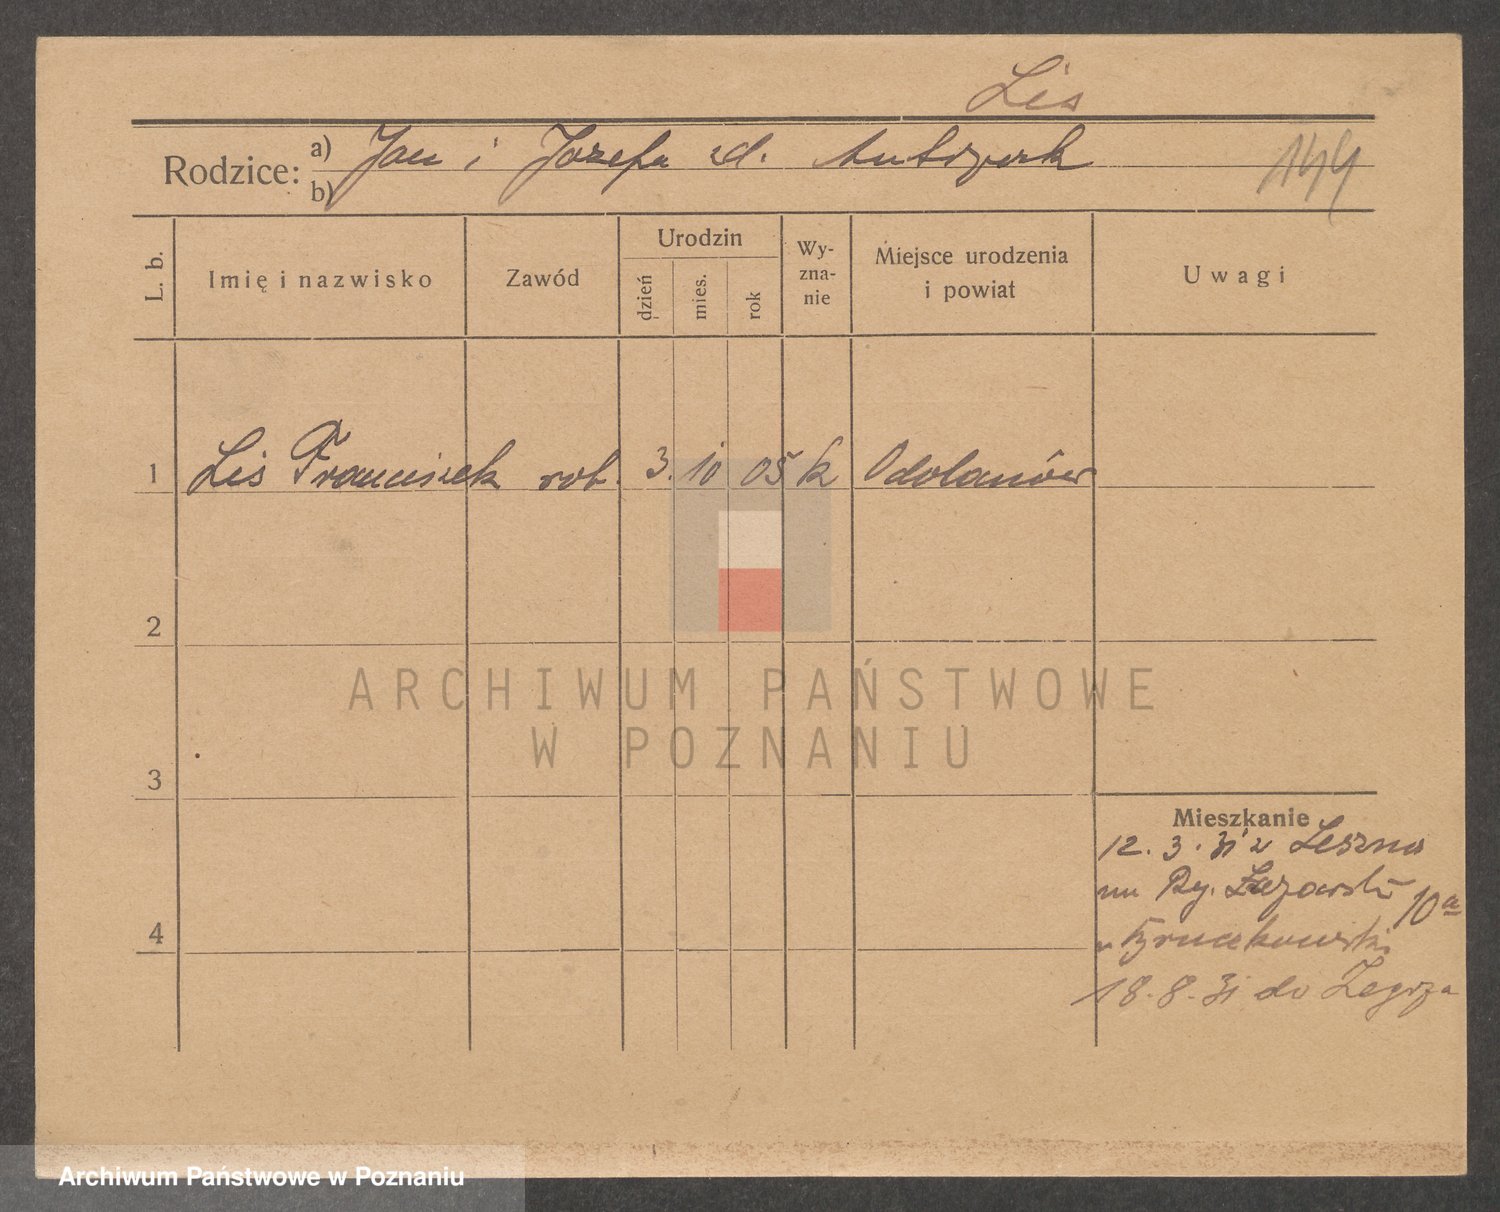 Lis
Rodzice: a) Jan i Józefa zd.
b)
144
L. b.
Imię i nazwisko
Zawód
Urodzin
dzień
mies.
rok
Wy-
zna-
nie
Miejsce urodzenia
i powiat
Uwagi
1 Lis Franciszek rob. 3. 10 05 k Odolanów
2
3
4
Mieszkanie
12. 3. 31 z Leszna
10a
18. 8. 31 do Zegrza
ARCHIWUM PAŃSTWOWE
W POZNANIU
Archiwum Państwowe w Poznaniu